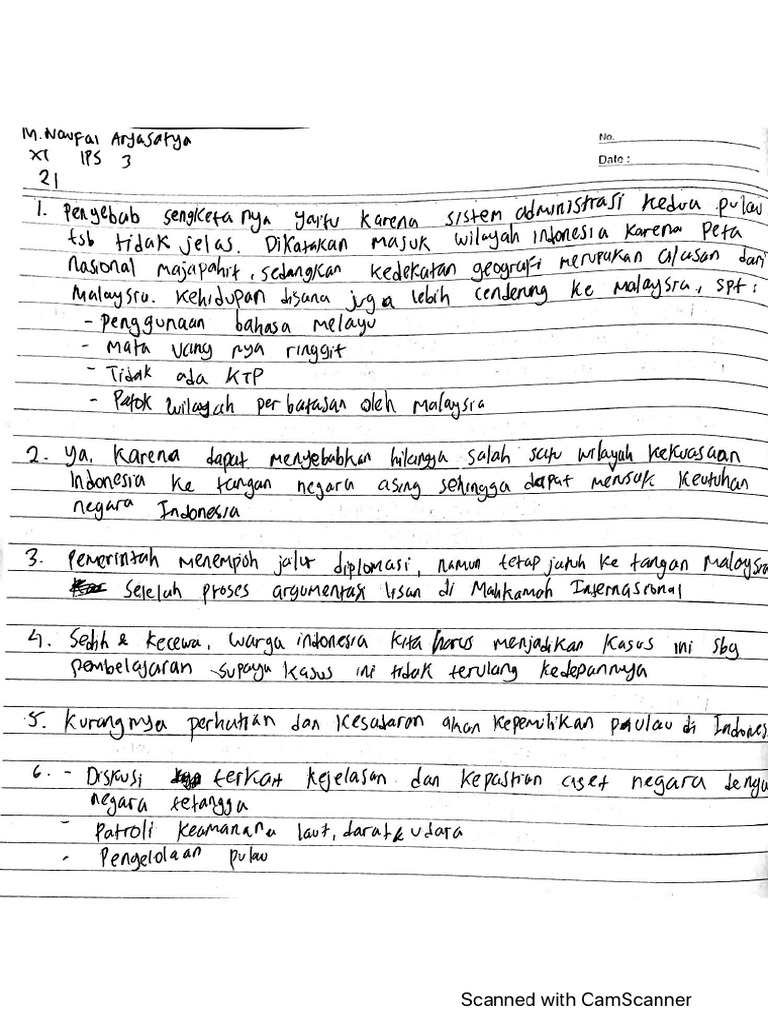 M. Naufal Aryasatya
XI IPS 3
21
No.
Date :
1. Penyebab sengketa nya yaitu karena sistem administrasi kedua pulau
tsb tidak jelas. Dikatakan masuk wilayah indonesia karena peta
nasional majapahit, sedangkan kedekatan geografi merupakan alasan dari
Malaysia. Kehidupan disana juga lebih cendering ke Malaysia, spt :
- Penggunaan bahasa melayu
- Mata uang nya ringgit
- Tidak ada KTP
- Patok wilayah perbatasan oleh Malaysia
2. Ya, karena dapat menyebabkan hilangya salah satu wilayah kekuasaan
Indonesia ke tangan negara asing sehingga dapat merusak keutuhan
negara Indonesia
3. Pemerintah menempoh jalur diplomasi, namun tetap jatuh ke tangan Malaysia
setelah proses argumentasi lisan di Mahkamah Internasional
4. Sedih & kecewa, warga indonesia kita harus menjadikan kasus ini sbg
pembelajaran supaya kasus ini tidak terulang kedepannya
5. Kurangnya perhatian dan kesadaran akan kepemilikan pulau di Indones
6. - Diskusi terkait kejelasan dan kepastian aset negara denga
negara tetangga
- Patroli keamanana laut, darat & udara
- Pengelolaan pulau
Scanned with CamScanner